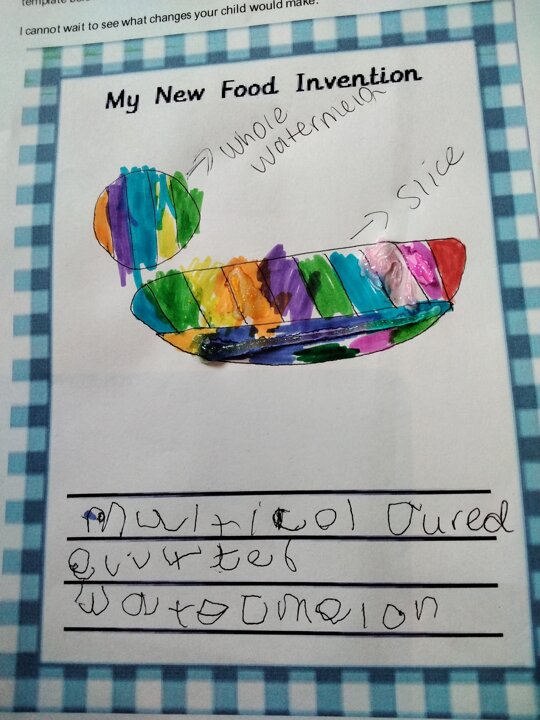 I cannot wait to see what changes your child would make.
My New Food Invention
Whole
Watermelon
Slice
Multicoloured
Watoomelon